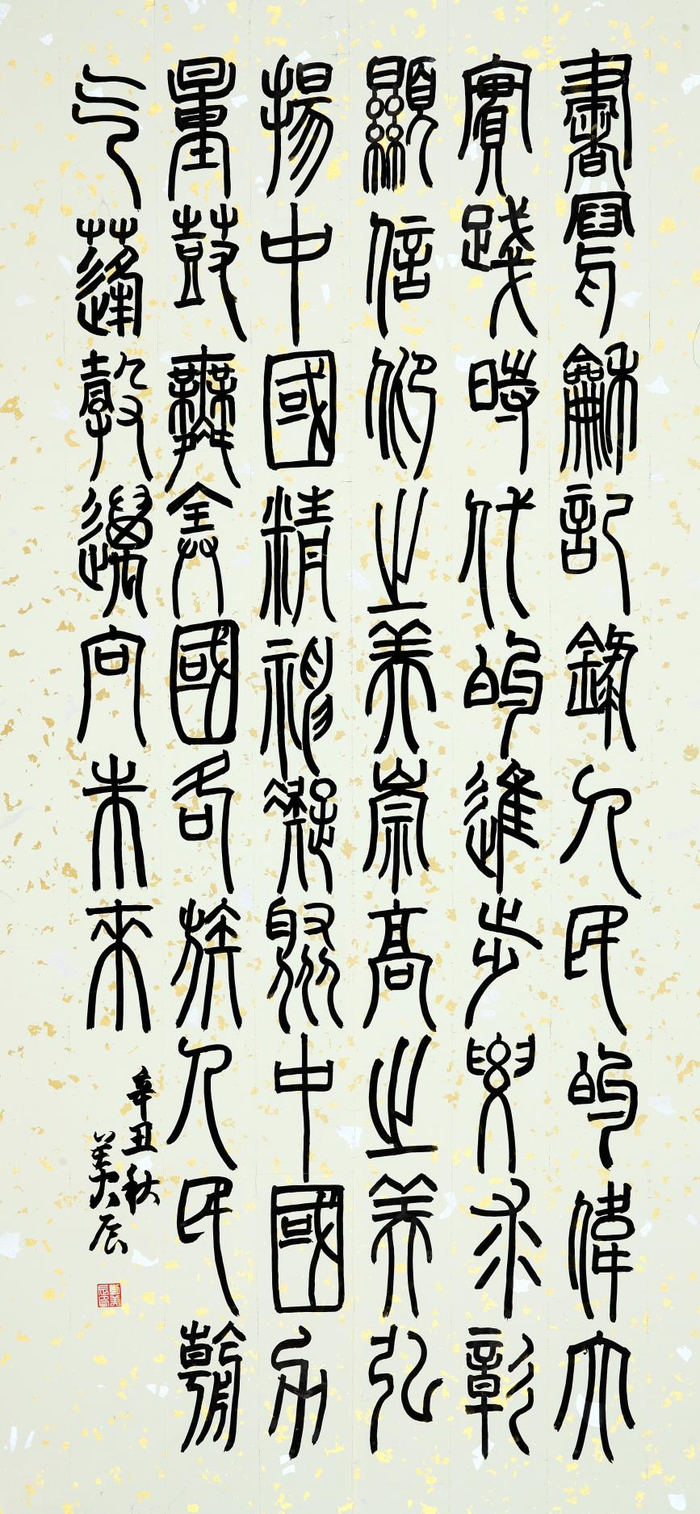 書寫龢記錄人民的偉大
實踐時代的進步要求彰
顯信仰之美崇高之美弘
揚中國精神凝聚中國力
量鼓舞全國各族人民朝
气蓬勃邁向未來
辛丑秋
美辰